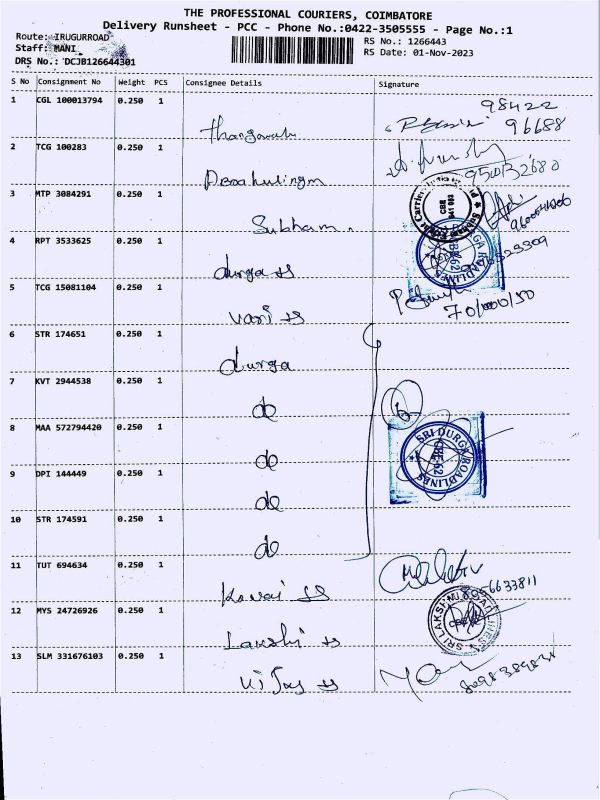 THE PROFESSIONAL COURIERS, COIMBATORE
Delivery Runsheet - PCC - Phone No.:0422-3505555 - Page No.:1
Route: IRUGURROAD
RS No.: 1266443
Staff: MANI
RS Date: 01-Nov-2023
DRS No.: DCJB126644301
S No Consignment No Weight PCS Consignee Details Signature
1 CGL 100013794 0.250 1
98422
96688
2 TCG 100283 0.250 1
3 MTP 3084291 0.250 1 Subham.
4 RPT 3533625 0.250 1 durga
5 TCG 15081104 0.250 1 vani
6 STR 174651 0.250 1 durga
7 KVT 2944538 0.250 1 do
8 MAA 572794420 0.250 1 do
SRI DURGA ROADLINES
CBE-62
9 DPI 144449 0.250 1 do
10 STR 174591 0.250 1 do
11 TUT 694634 0.250 1 Kovai
6633811
12 MYS 24726926 0.250 1 Lakshi
13 SLM 331676103 0.250 1 Vijay